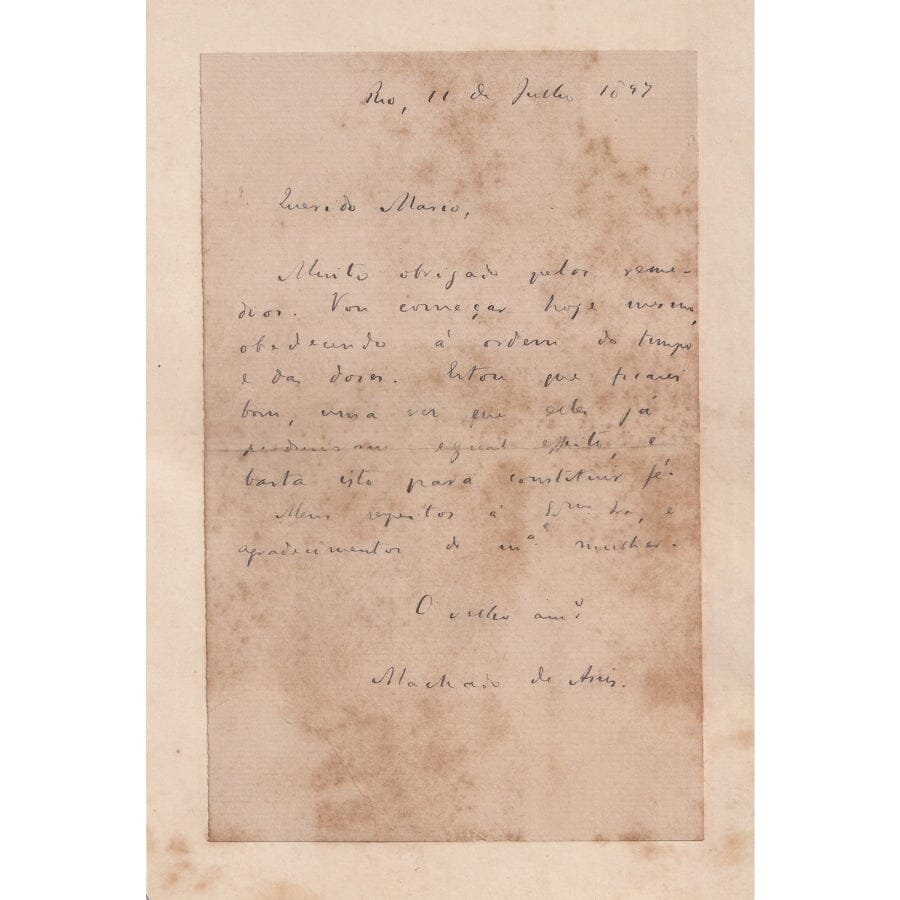 Rio, 11 de Julho 1897
Querido Mario,
Muito obrigado pelos reme-
dios. Vou começar hoje mesmo,
obedecendo á ordem do tempo
e das dores. Estou que ficarei
bom, uma vez que elles já
produziram egual effeito, e
basta isto para constituir fé.
Meus respeitos á Exma. Sra, e
agradecimentos de mª mulher.
O velho amº
Machado de Assis.